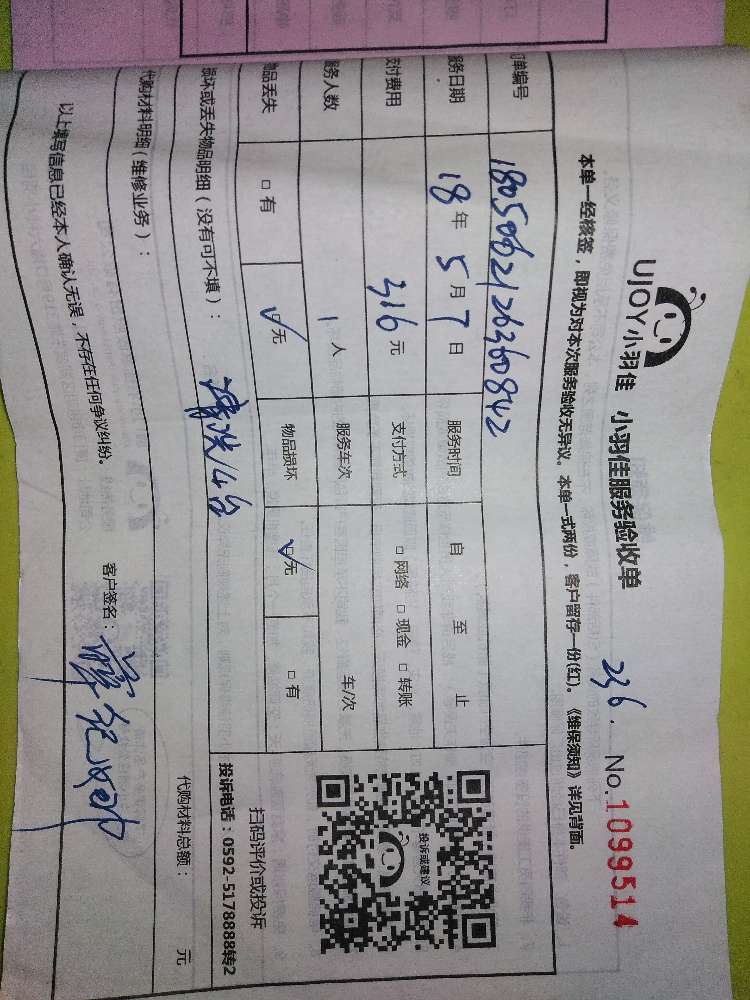 UJOY小羽佳 小羽佳服务验收单 236. No.1099514
本单一经核签，即视为对本次服务验收无异议。本单一式两份，客户留存一份(红)。《维保须知》详见背面。
订单编号 1805062126360842
服务日期 18年5月7日 服务时间 自 至 止
支付费用 316元 支付方式 □网络 □现金 □转账
服务人数 1人 服务车次 车/次
物品丢失 □有 ☑无 物品损坏 ☑无 □有
投诉或建议
扫码评价或投诉
投诉电话：0592-5178888转2
损坏或丢失物品明细（没有可不填）：
清洗/4台
代购材料明细(维修业务)： 代购材料总额： 元
以上填写信息已经本人确认无误，不存在任何争议纠纷。 客户签名：